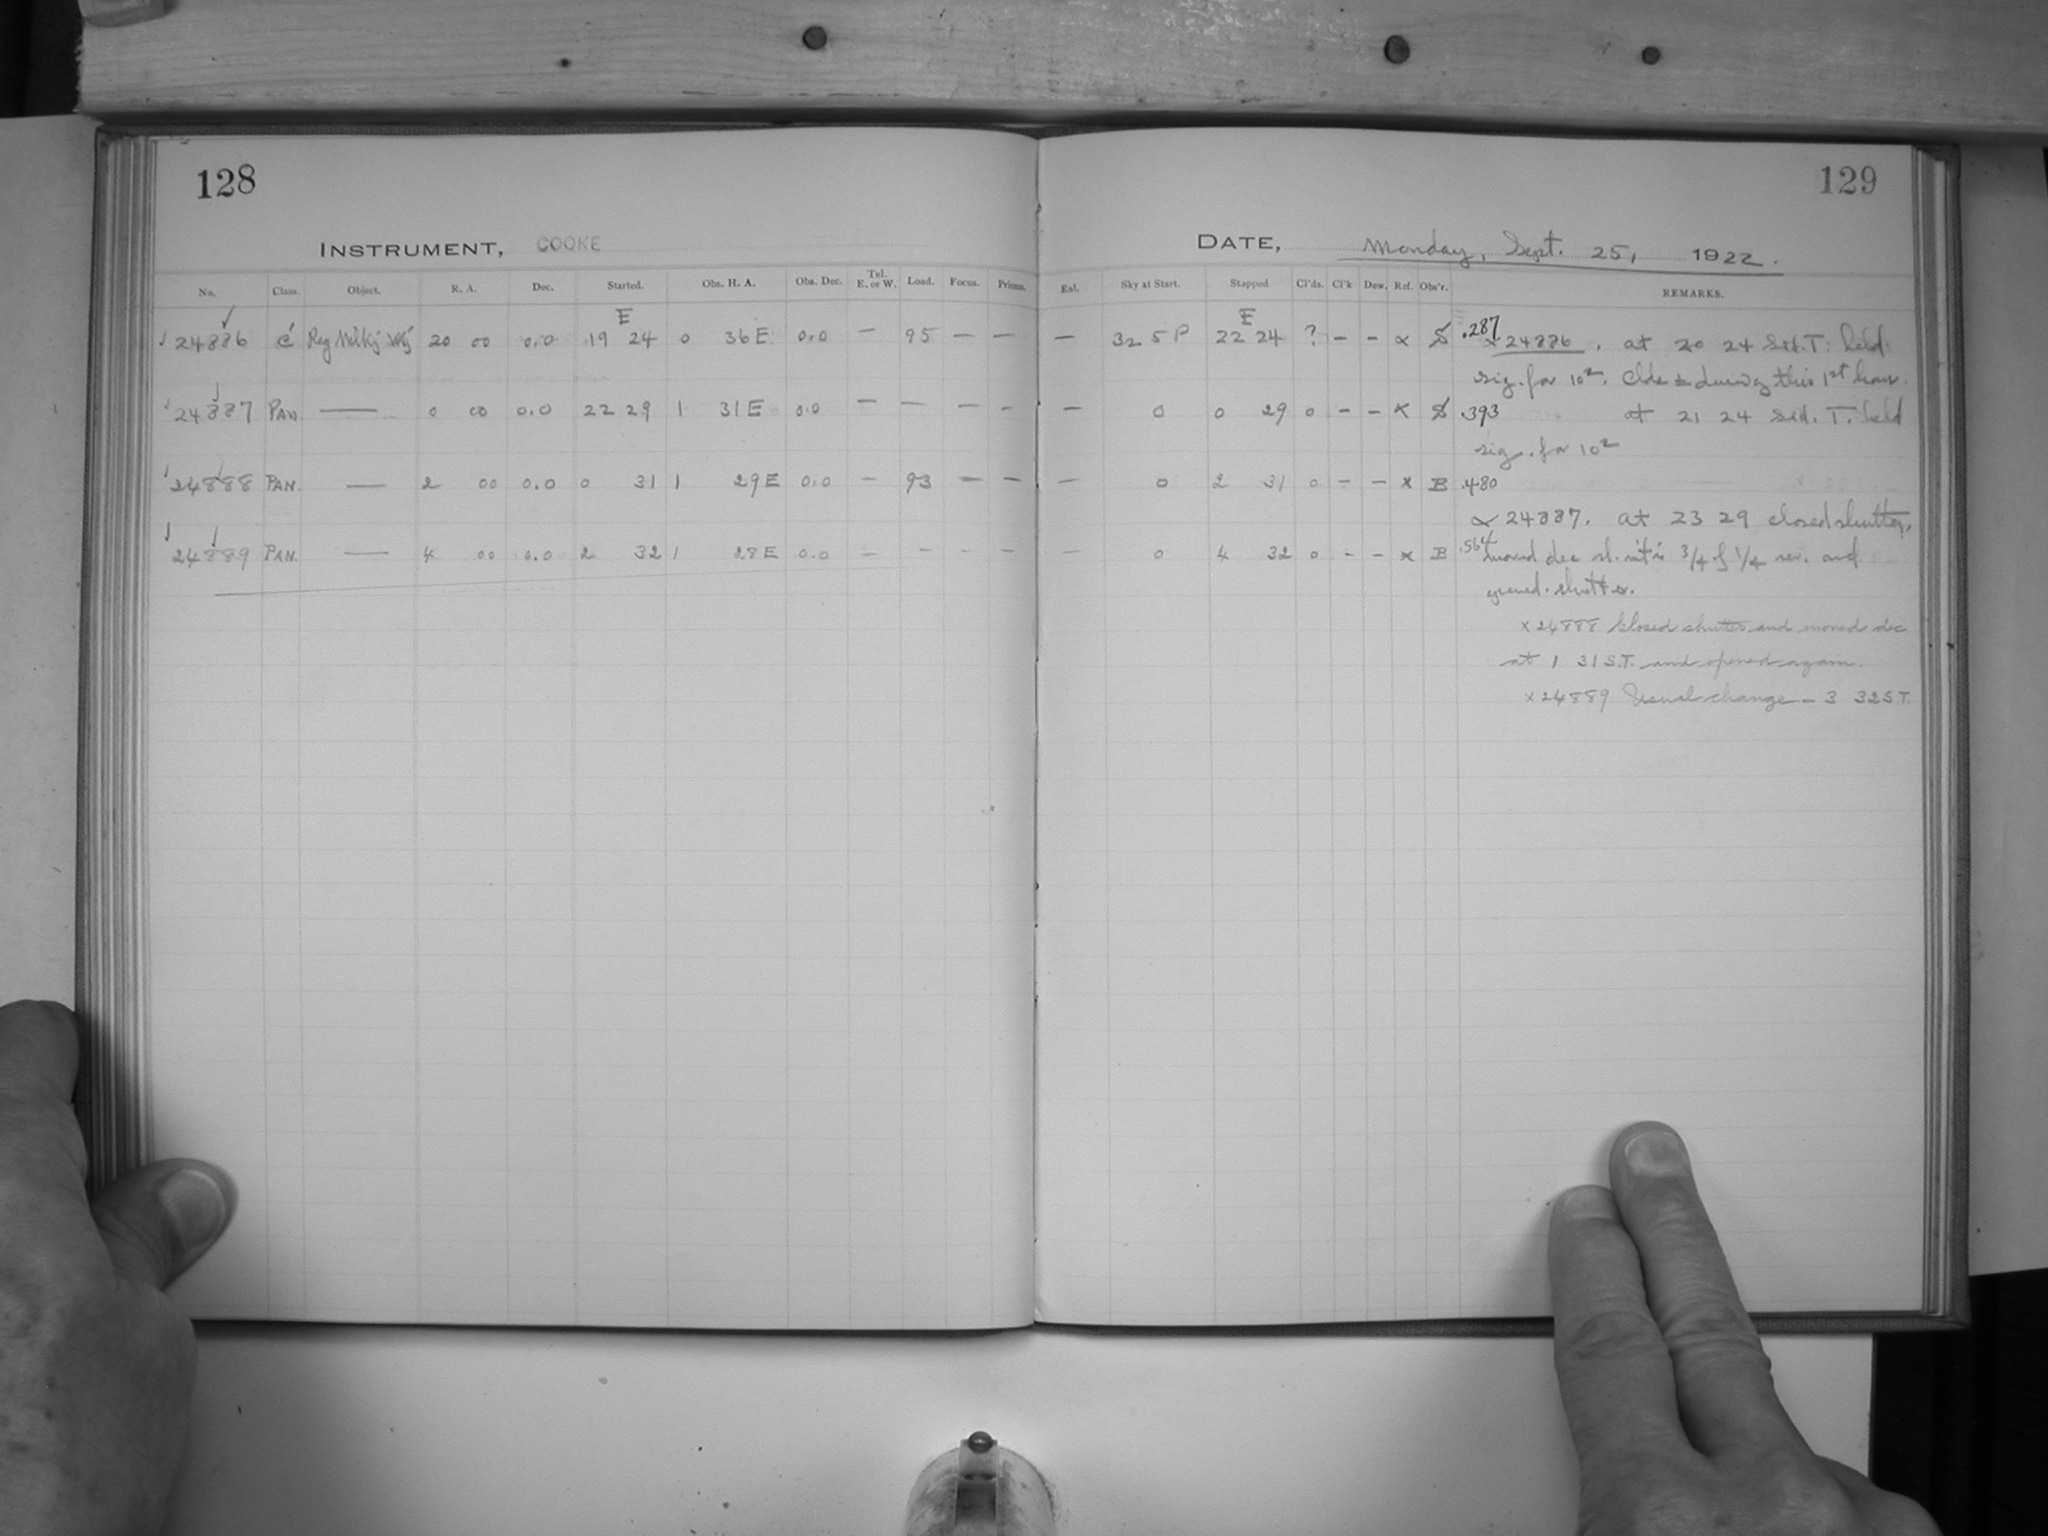 128
129
INSTRUMENT, COOKE
DATE, Monday, Sept. 25, 1922.
No. Class. Object. R. A. Dec. Started. Obs. H. A. Obs. Dec. Tel. E. or W. Load. Focus. Prisms. Enl. Sky at Start. Stopped Cl'ds. Cl'k Dew. Ref. Obs'r. REMARKS.
E E
24886 C Reg Milky Way 20 00 0.0 19 24 0 36 E 0.0 — 95 — — — 32 5 P 22 24 ? – – × S .287 × 24886. at 20 24 Sid. T. held
sig. for 10². Clds ± during this 1st hour.
24887 PAN. — 0 00 0.0 22 29 1 31 E 0.0 — — — — — 0 0 29 0 – – × S .393 at 21 24 Sid. T. held
sig. for 10²
24888 PAN. — 2 00 0.0 0 31 1 29 E 0.0 — 93 — — — 0 2 31 0 – – × B .480
× 24887. at 23 29 closed shutter,
24889 PAN. — 4 00 0.0 2 32 1 28 E 0.0 – – – – – 0 4 32 0 – – × B .564 moved dec sl. mt'n 3/4 of 1/4 rev. and
opened shutter.
× 24888 Closed shutter and moved dec
at 1 31 S.T. and opened again.
× 24889 Usual change – 3 32 S.T.